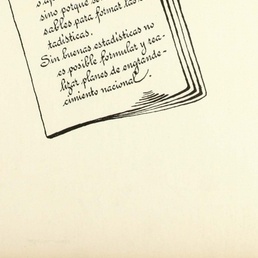 sino porque se
sables para formar las
tadísticas.
Sin buenas estadísticas no
es posible formular y rea-
lizar planes de engrande-
cimiento nacional.